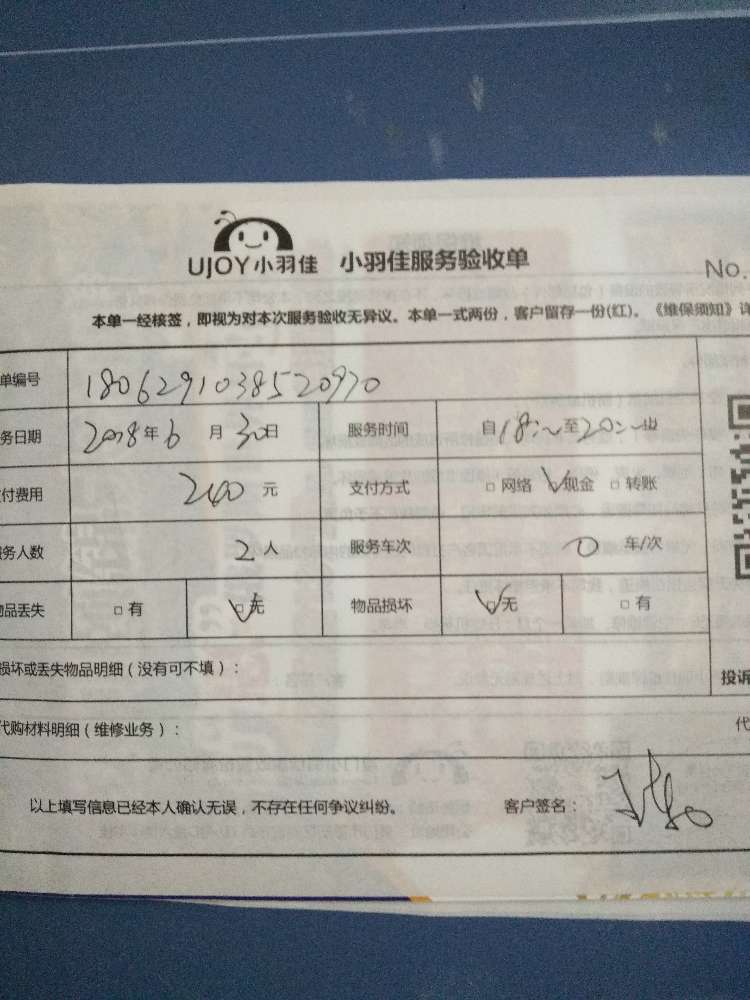 UJOY小羽佳 小羽佳服务验收单
No.
本单一经核签，即视为对本次服务验收无异议。本单一式两份，客户留存一份(红)。《维保须知》详
单编号 18062910385520970
务日期 2018年6月30日 服务时间 自18:~至20:~
付费用 240元 支付方式 □网络 ☑现金 □转账
务人数 2人 服务车次 0 车/次
品丢失 □有 ☑无 物品损坏 ☑无 □有
损坏或丢失物品明细（没有可不填）：
投诉
代购材料明细（维修业务）：
代
以上填写信息已经本人确认无误，不存在任何争议纠纷。 客户签名：